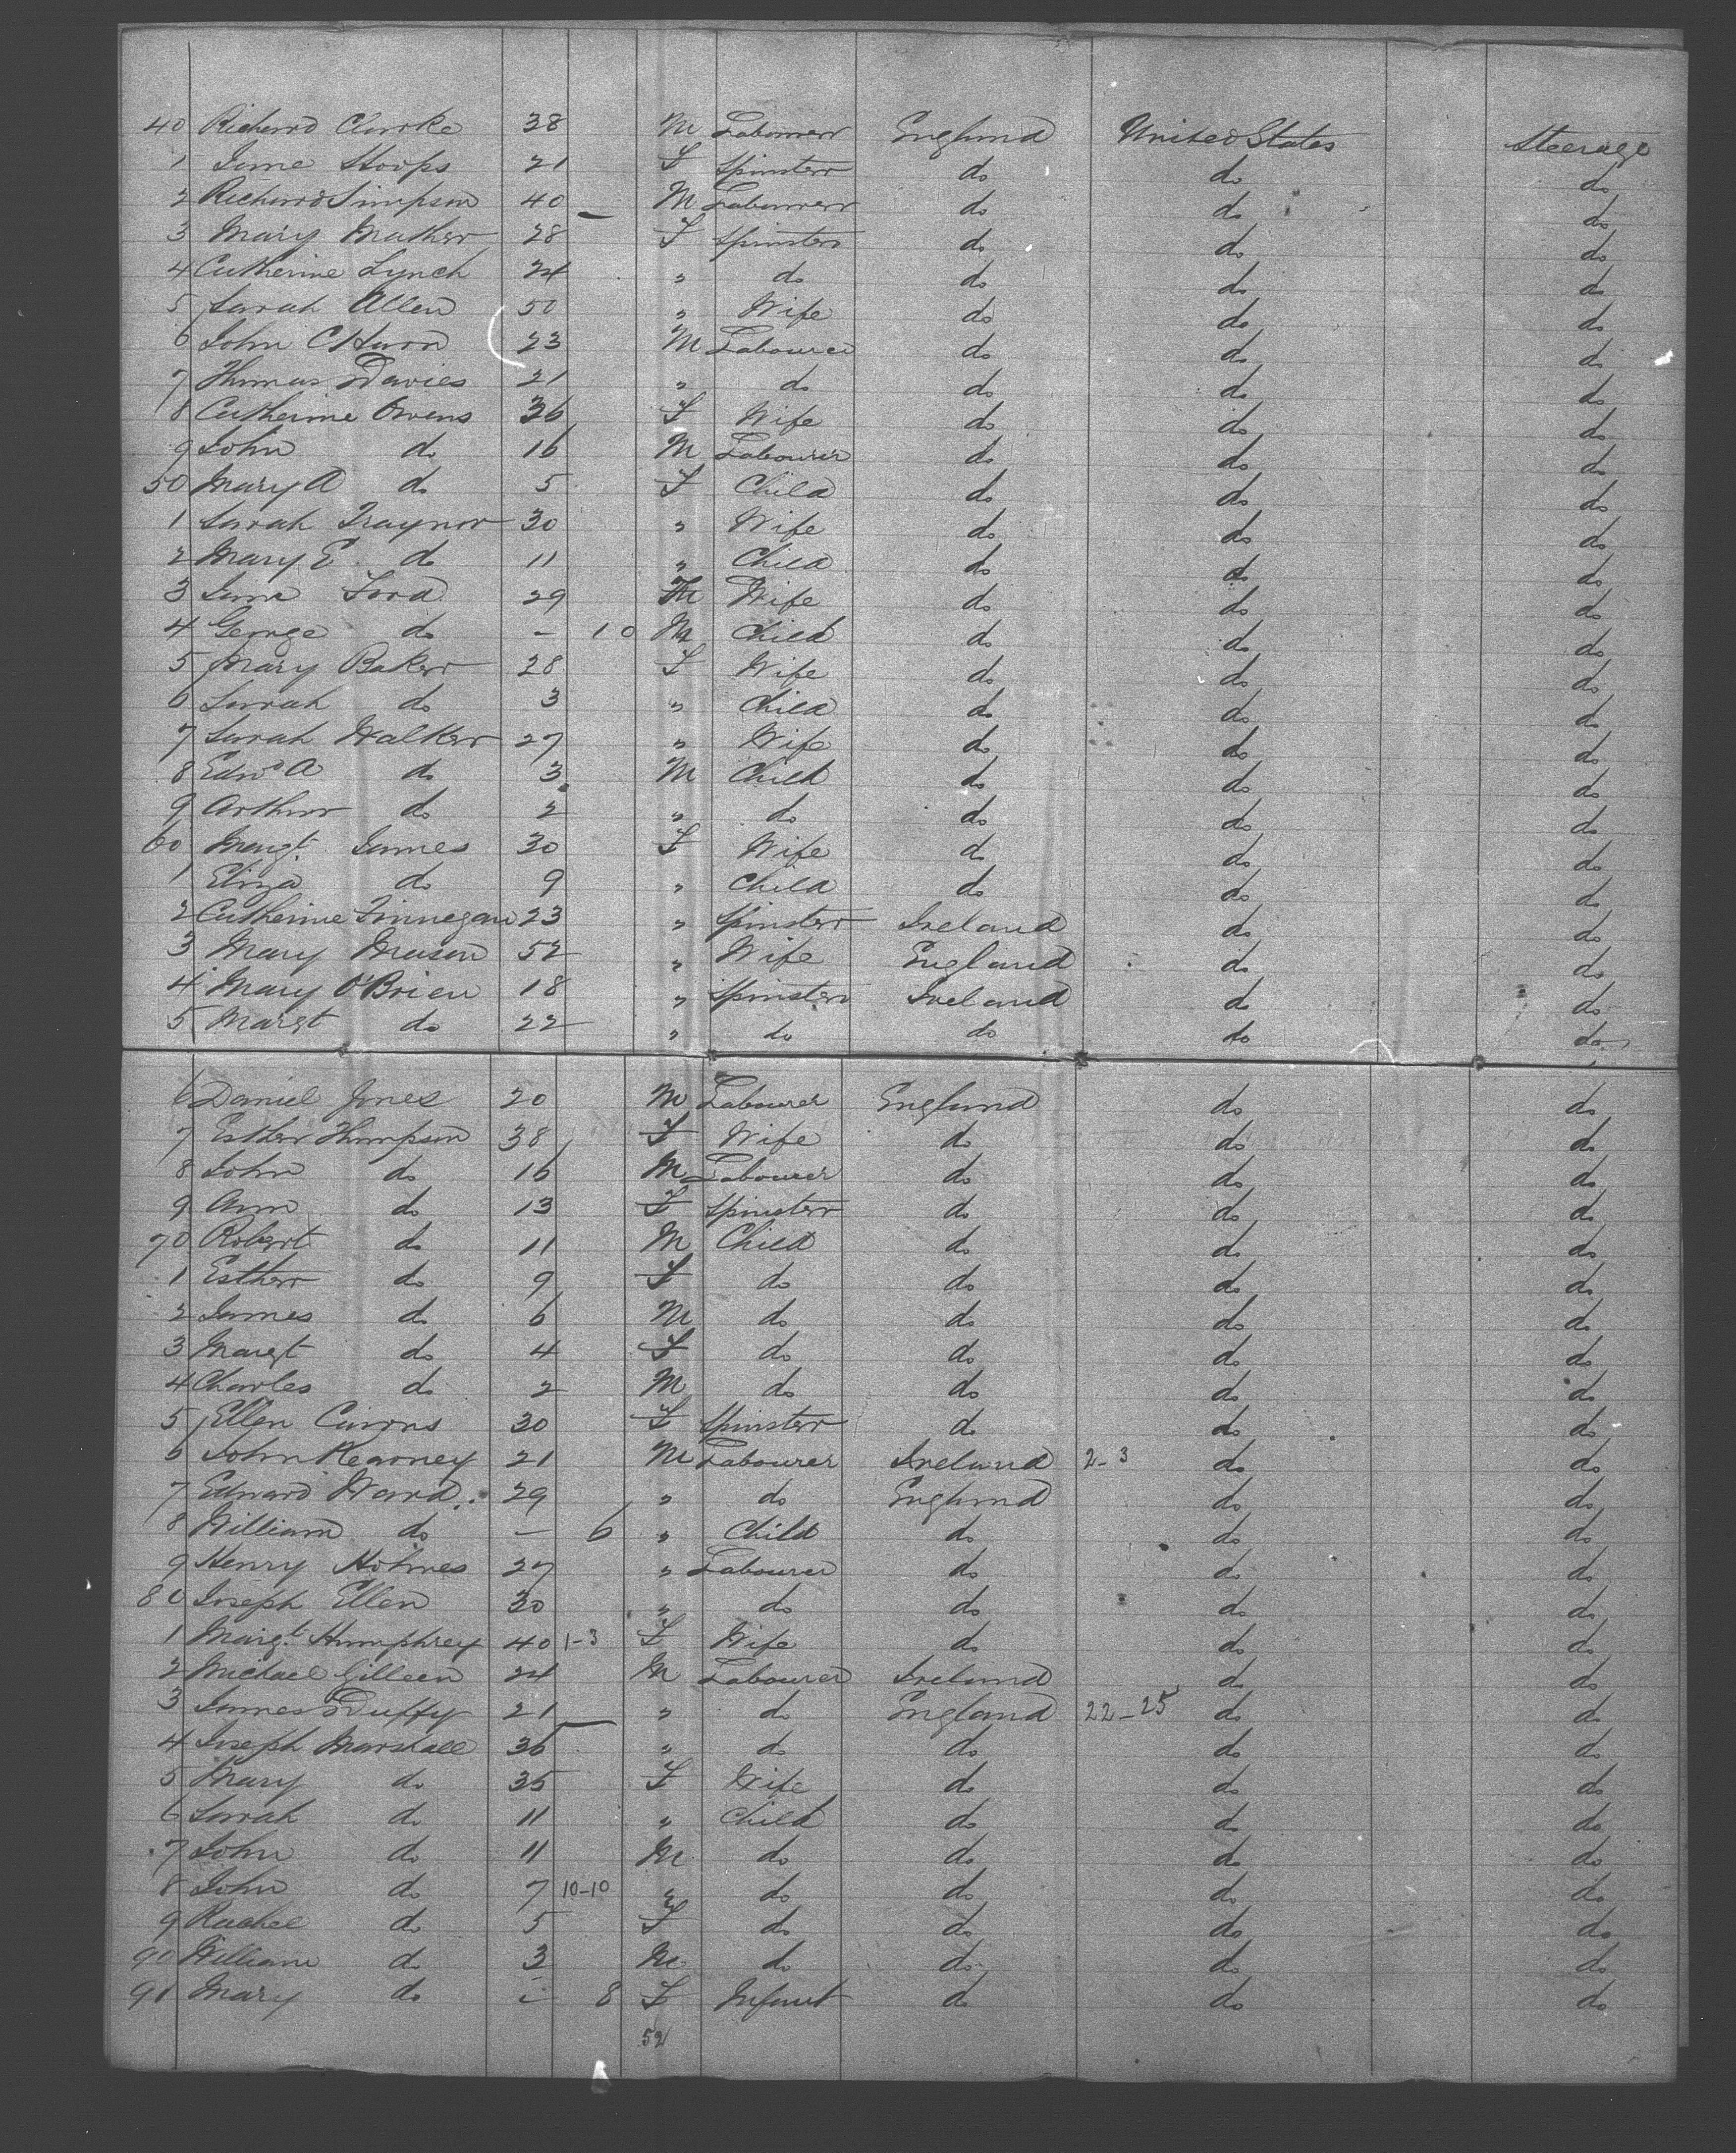 40 Richard Clarke 38 M Labourer England United States Steerage
1 Jane Hoops 21 F Spinster do do do
2 Richard Simpson 40 M Labourer do do do
3 Mary Mather 28 F Spinster do do do
4 Catherine Lynch 24 " do do do do
5 Sarah Allen 50 " Wife do do do
6 John 23 M Labourer do do do
7 Thomas Davies 21 " do do do do
8 Catherine Owens 36 F Wife do do do
9 John do 16 M Labourer do do do
50 Mary A do 5 F Child do do do
1 Sarah Traynor 30 " Wife do do do
2 Mary E do 11 " Child do do do
3 Jane Ford 29 Wife do do do
4 George do - 10 M Child do do do
5 Mary Baker 28 F Wife do do do
6 Sarah do 3 " Child do do do
7 Sarah Walker 27 " Wife do do do
8 Edwd A do 3 M Child do do do
9 Arthur do 2 " do do do do
60 Margt James 30 F Wife do do do
1 Eliza do 9 " Child do do do
2 Catherine Finnegan 23 " Spinster Ireland do do
3 Mary Mason 52 " Wife England do do
4 Mary O'Brien 18 " Spinster Ireland do do
5 Margt do 22 " do do do do
6 Daniel Jones 20 M Labourer England do do
7 Esther Thompson 38 F Wife do do do
8 John do 16 M Labourer do do do
9 Ann do 13 F Spinster do do do
70 Robert do 11 M Child do do do
1 Esther do 9 F do do do do
2 James do 6 M do do do do
3 Margt do 4 F do do do do
4 Charles do 2 M do do do do
5 Ellen 30 F Spinster do do do
6 John Kearney 21 M Labourer Ireland 2-3 do do
7 Edward Ward 29 " do England do do
8 William do - 6 " Child do do do
9 Henry Holmes 27 " Labourer do do do
80 Joseph Ellen 30 " do do do do
1 Margt Humphrey 40 1-3 F Wife do do do
2 Michael Gilleen 24 M Labourer Ireland do do
3 James Duffy 21 " do England 22-25 do do
4 Joseph Marshall 36 " do do do do
5 Mary do 35 F Wife do do do
6 Sarah do 11 " Child do do do
7 John do 11 M do do do do
8 John do 7 10-10 " do do do do
9 Rachel do 5 F do do do do
90 William do 3 M do do do do
91 Mary do - 8 F Infant do do do
52